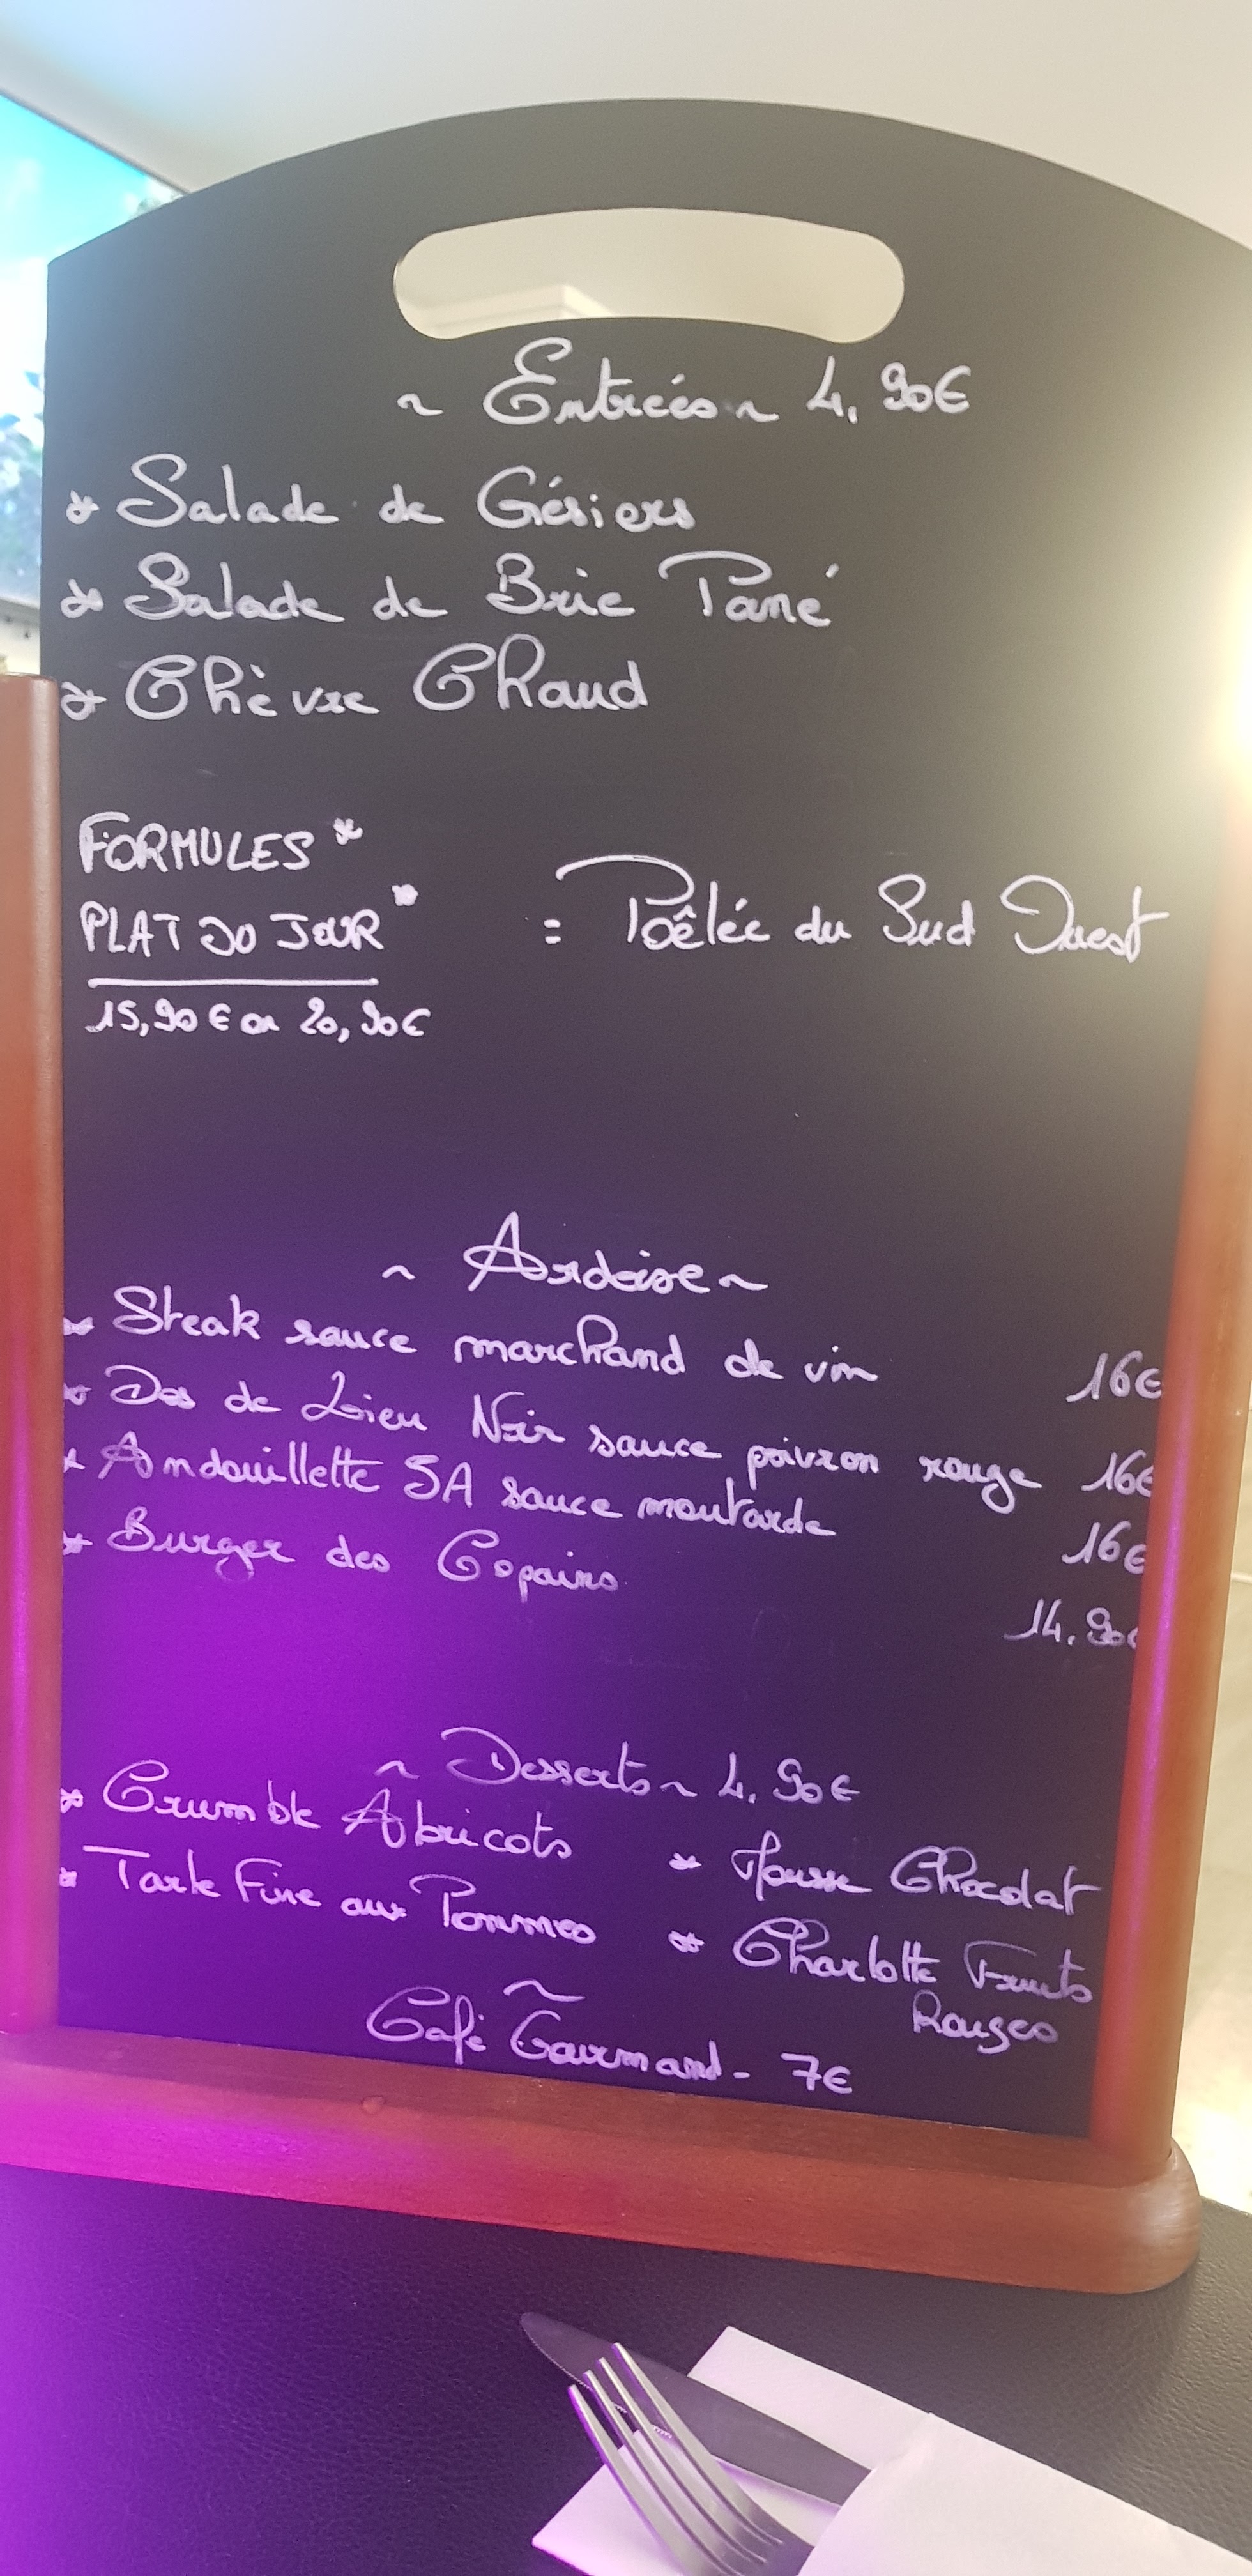 ~ Entrées ~ 4,90€
* Salade de Gésiers
* Salade de Brie Pané
* Chèvre Chaud
FORMULES *
PLAT DU JOUR * = Poêlée du Sud Ouest
15,90€ ou 20,90€
~ Ardoise ~
* Steak sauce marchand de vin 16€
* Dos de Lieu Noir sauce poivron rouge 16€
* Andouillette 5A sauce moutarde 16€
* Burger des Copains 14.90€
~ Desserts ~ 4.90€
* Crumble Abricots * Mousse Chocolat
* Tarte Fine aux Pommes * Charlotte Fruits
Rouges
~
Café Gourmand - 7€